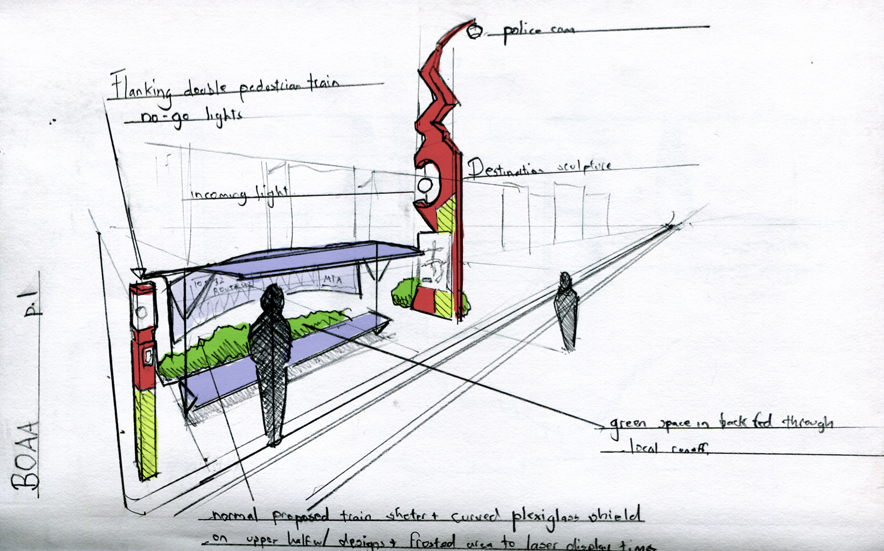 police cam
Flanking double pedestrian train
no-go lights
Destination sculpture
incoming light
MTA
green space in back fed through
local runoff
normal proposed train shelter + curved plexiglass shield
on upper half w/ designs + frosted area to laser display time
BOAA p.1